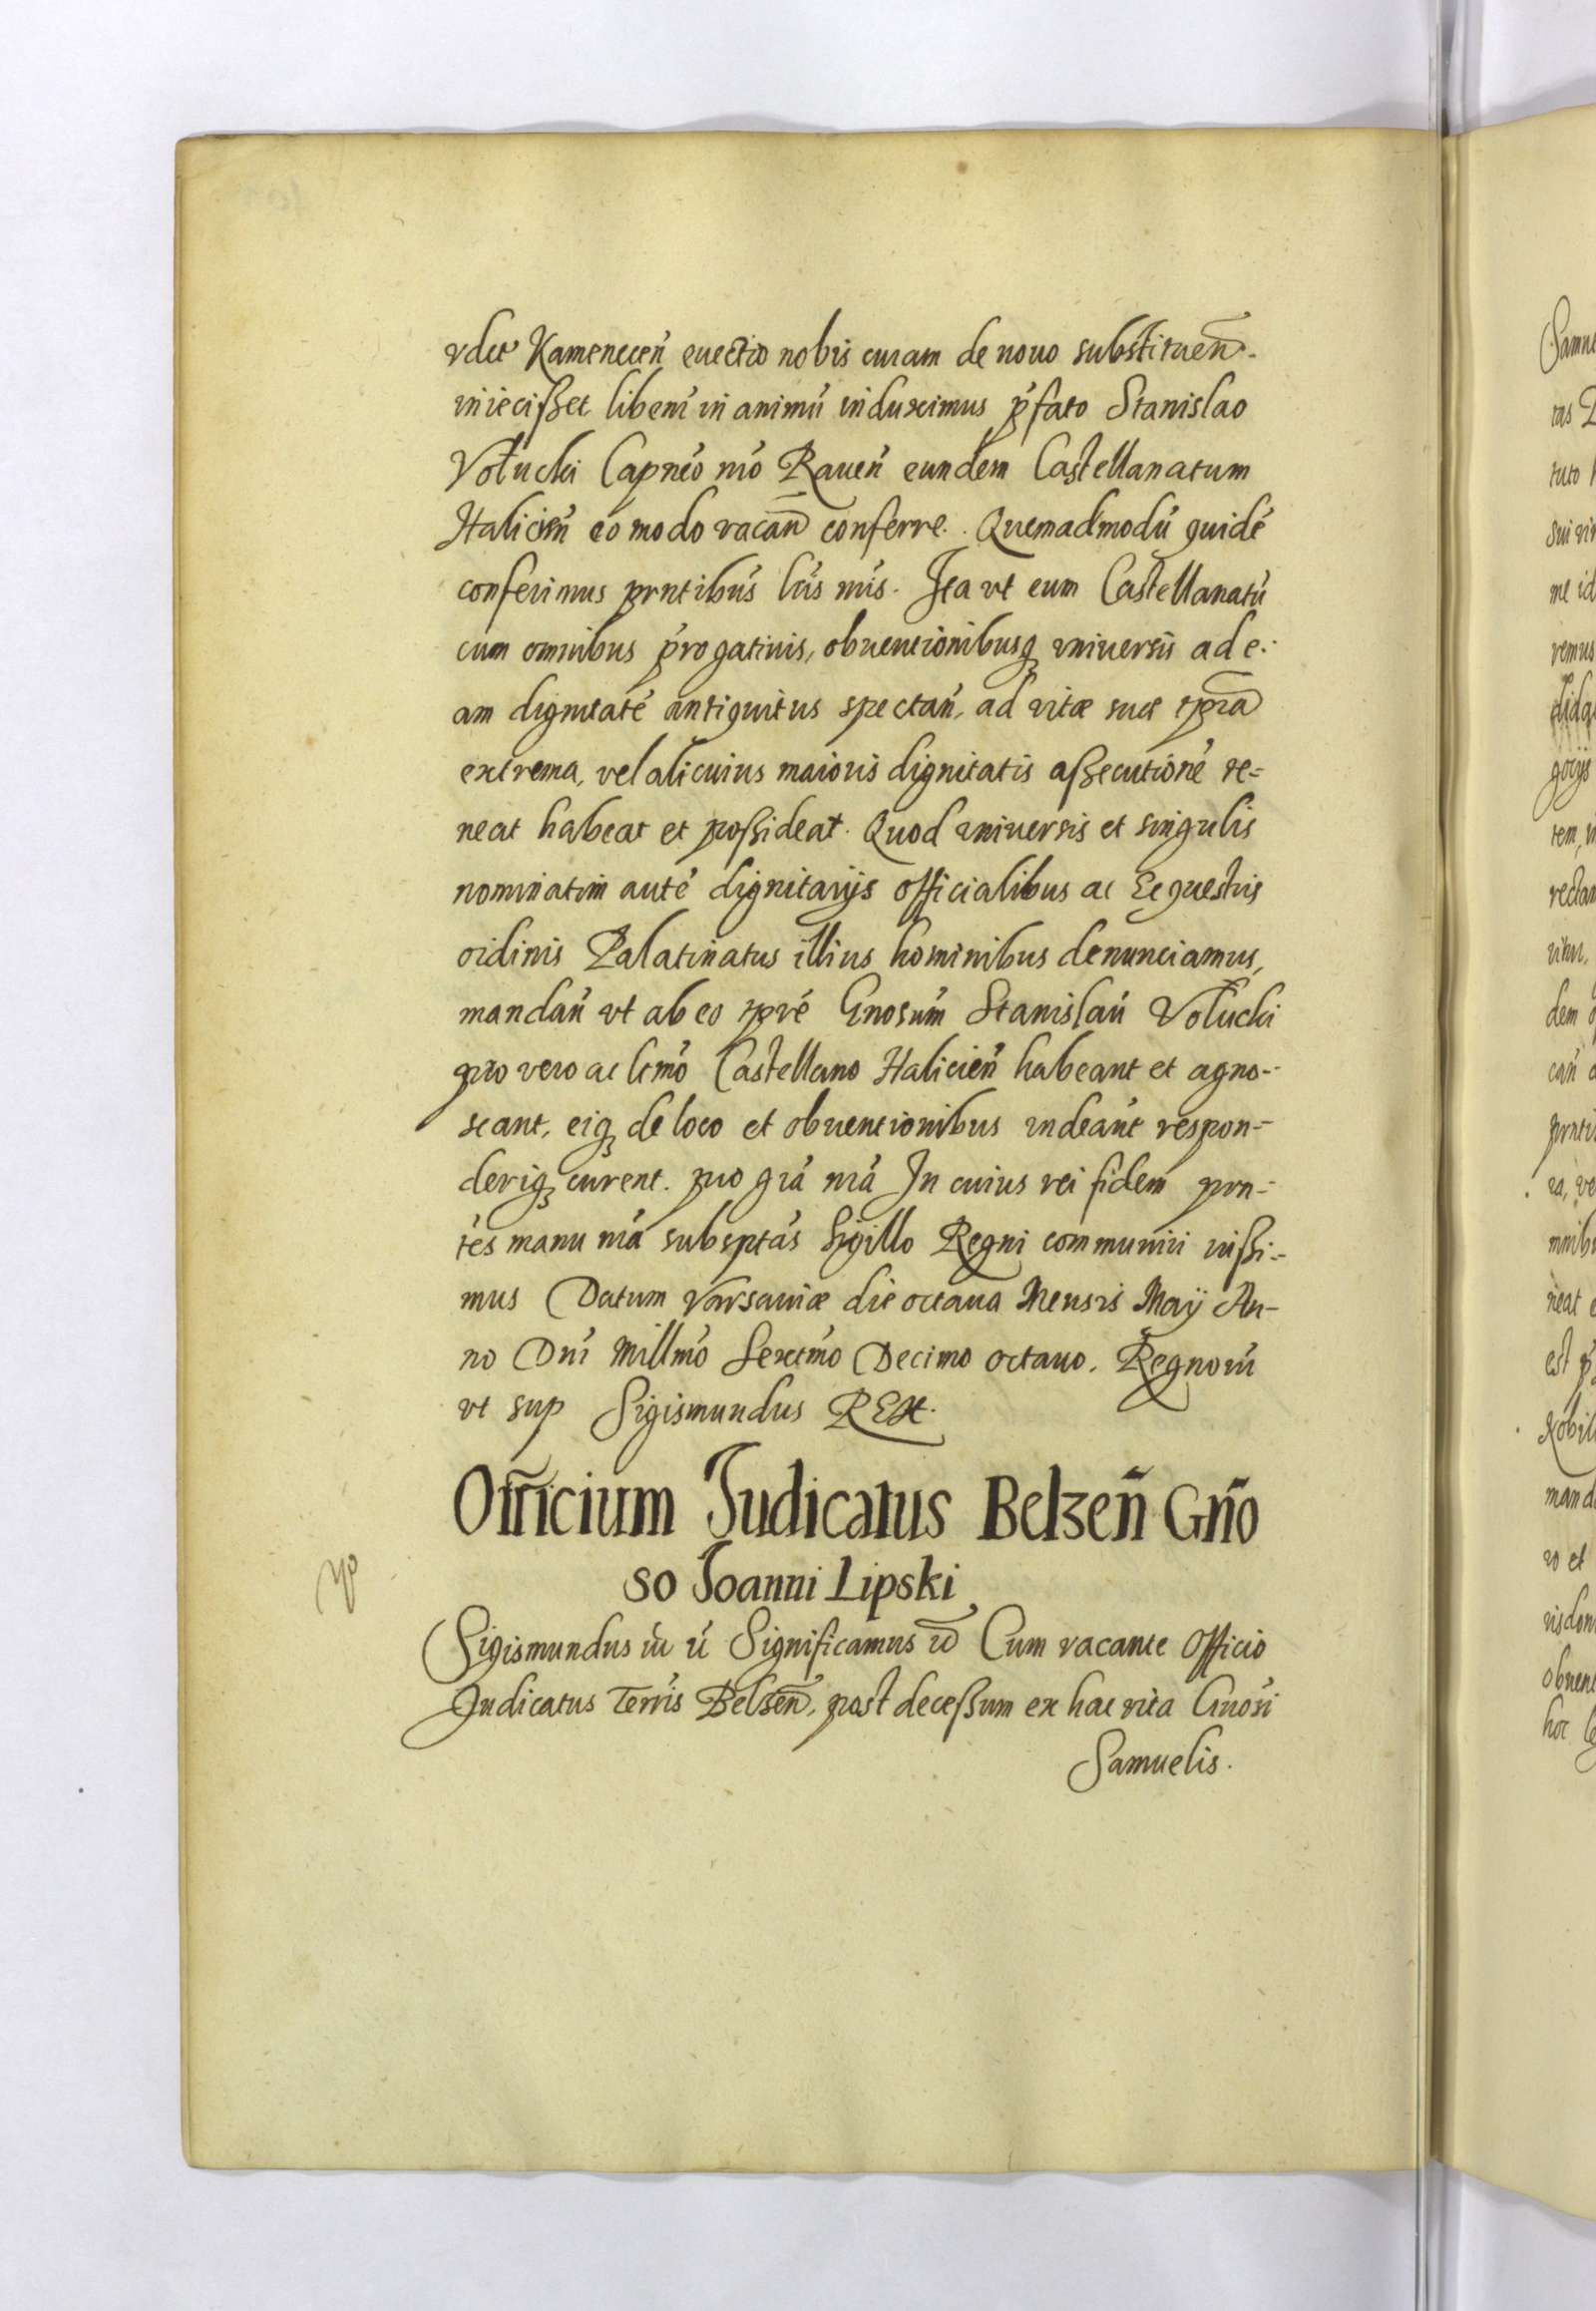 vdet Kamenecen̄ euectio nobis curam de nouo substituen̄
iniecißet libent in animū induximus p̄fato Stanislao
Votucki Capnēo nr̄o Rauen̄ eundem Castellanatum
Halicien̄ eo modo vacan̄ conferre. Quemadmodū quidē
conferimus prntibus lr̄is nr̄is. Ita vt eum Castellanatū
cum omnibus p̄rogatiuis, obuentionibusq vniuersis ad e-
am dignitatē antiquitus spectan̄, ad vitæ suæ tp̄ra
extrema, vel alicuius maioris dignitatis aßecutionē te=
neat habeat et poßideat. Quod vniuersis et singulis
nominatim autē dignitarijs officialibus ac Equestris
ordinis Palatinatus illius hominibus denunciamus,
mandan̄ vt ab eo tp̄re Gnosum̄ Stanislaū Votucki
pro vero ac ltmō Castellano Halicien̄ habeant et agno-
scant, eiq de loco et obuentionibus vndeant respon-
deriq curent. pro gr̄a nr̄a In cuius rei fidem prn-
tes manu nr̄a subsptas Sigillo Regni communiri iußi-
mus Datum Varsauiæ die octaua Mensis Maij An-
no Dnī Millmō Sextmō Decimo octauo. Regnorū
vt sup Sigismundus REX.
Officium Judicatus Belzen̄ Gn̄o
so Joanni Lipski
Sigismundus ū ū Significamus ū Cum vacante Officio
Judicatus Terris Belzen̄, post deceßum ex hac vita Gnosi
Samuelis.